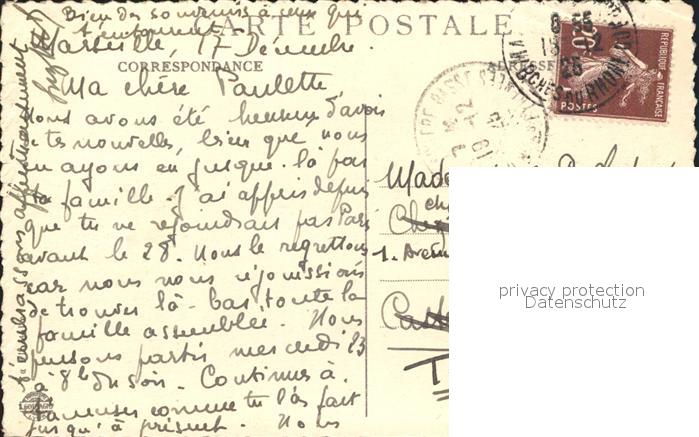 Bien des souvenirs à ceux qui
t'entourent
CARTE POSTALE
Marseille, 17 Décembre
CORRESPONDANCE
ADRESSE
Ma chère Paulette,
Nous avons été heureux d'avoir
de tes nouvelles, bien que nous
en ayons eu jusque-là par
ta famille. J'ai appris depuis
que tu ne rejoindrais pas Paris
avant le 28. Nous le regrettons
car nous nous réjouissions
de trouver là-bas toute la
famille assemblée. Nous
pensons partir mercredi 23
à 8h du soir. Continues à
t'amuser comme tu l'as fait
jusqu'à présent. Nous
t'embrassons affectueusement
REPUBLIQUE FRANÇAISE
POSTES
20c
8-55
25
BCHES DU RHONE
Made
1. Avenu
privacy protection
Datenschutz